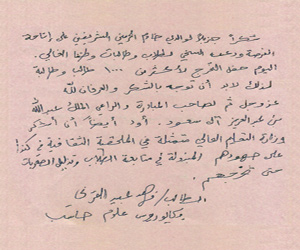 شكراً جزيلاً لوالدي خادم الحرمين الشريفين على إتاحة
الفرصة ودعمه السخي لطلاب وطالبات وطننا الغالي.
اليوم حفل تخرج لأكثر من ١٠٠٠ طالب وطالبة
لذلك لابد أن نتوجه بالشكر والعرفان لله
عز وجل ثم لصاحب المبادرة والراعي الملك عبدالله
بن عبدالعزيز آل سعود. أود أيضاً أن أشكر
وزارة التعليم العالي متمثلة في الملحقية الثقافية في كندا
على جهودهم المبذولة في متابعة الطلاب وتذليل الصعوبات
حتى تخرجهم.
الطالب / فهد عبيد
بكالوريوس علوم حاسب